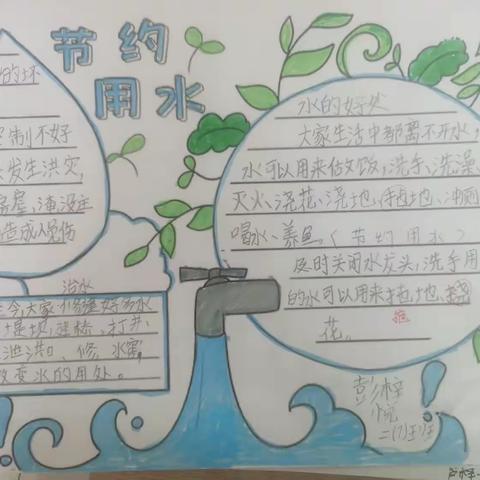 节约
用水
的坏
制不好
发生洪灾,
房屋,淹没庄
造成人员伤
治水
今,大家修建好多水
堤坝,建桥,打井,
泄洪口、修水窖,
改变水的用处。
水的好处
大家生活中都离不开水,
水可以用来做饭,洗手、洗澡,
灭火、浇花、浇地、拖地、冲厕
喝水、养鱼,(节约用水)
及时关闭水龙头,洗手用
的水可以用来拖地、浇
拖
花。
彭梓
悦
二(7)班